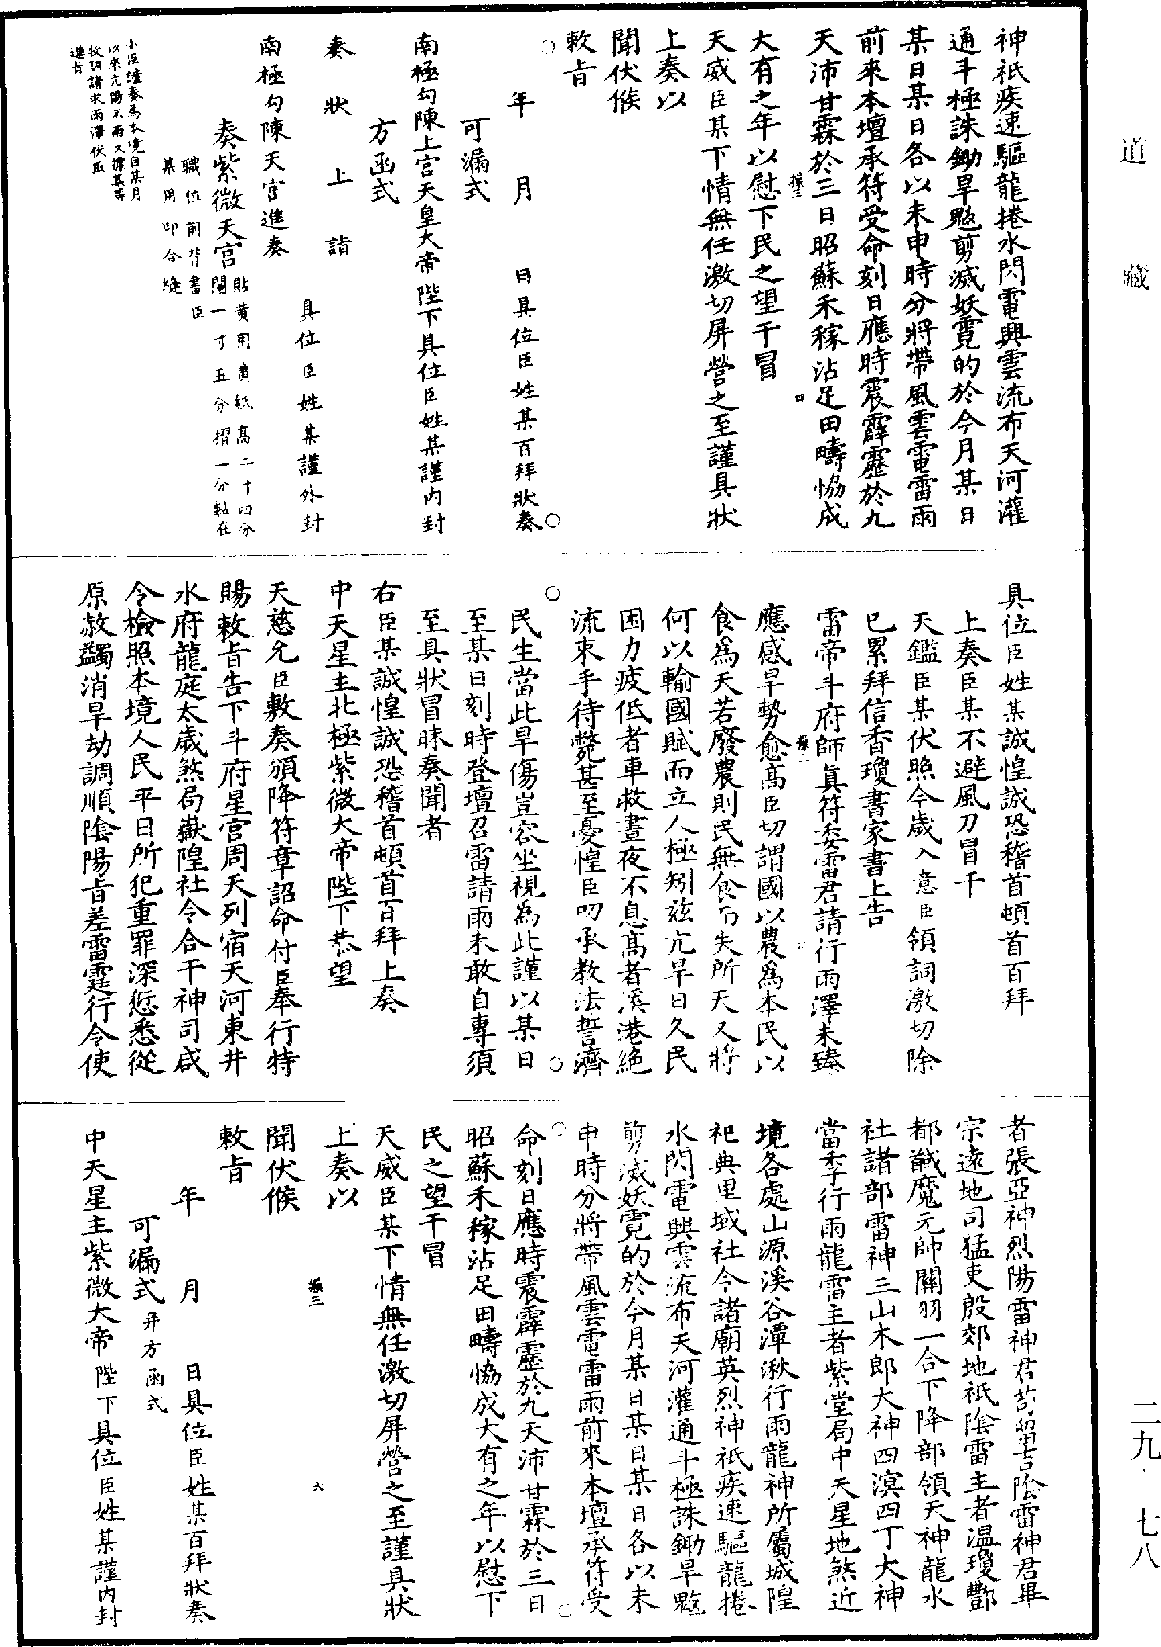 道藏
神祇疾速驅龍捲水閃電興雲流布天河灌
通斗極誅鋤旱魃剪滅妖霓的於今月某日
某日某日各以未申時分將帶風雲電雷雨
前來本壇承符受命刻日應時震霹靂於九
天沛甘霖於三日昭蘇禾稼沾足田疇恊成
大有之年以慰下民之望干冒
天威臣某下情無任激切屏營之至謹具狀
上奏以
聞伏候
敕旨
年　月　日具位臣姓某百拜狀奏
可漏式
南極勾陳上宮天皇大帝陛下具位臣姓某謹内封
方函式
奏狀上詣
具位臣姓某謹外封
南極勾陳天宮進奏
奏紫微天宮
貼黃用黃紙高二十四分
闊一寸五分摺一分粘在
職位前背書臣
某用印合縫
小臣謹奏為本境自某月
以來亢陽不雨又據某等
投詞請求雨澤伏取
進旨
具位臣姓某誠惶誠恐稽首頓首百拜
上奏臣某不避風刀冒干
天鑑臣某伏照今歲入意臣領詞激切除
已累拜信香瓊書家書上告
雷帝斗府師真符委雷君請行雨澤未臻
應感旱勢愈高臣切謂國以農為本民以
食為天若廢農則民無食而失所天又將
何以輸國賦而立人極矧兹亢旱日久民
困力疲低者車救晝夜不息高者溪港絶
流束手待斃甚至憂惶臣叨承教法誓濟
民生當此旱傷豈容坐視為此謹以某日
至某日刻時登壇召雷請雨未敢自專須
至具狀冒昧奏聞者
右臣某誠惶誠恐稽首頓首百拜上奏
中天星主北極紫微大帝陛下恭望
天慈允臣敷奏頒降符章詔命付臣奉行特
賜敕旨告下斗府星宮周天列宿天河東井
水府龍庭太歲煞局嶽隍社令合干神司咸
令檢照本境人民平日所犯重罪深愆悉從
原赦蠲消旱劫調順陰陽旨差雷霆行令使
者張亞神烈陽雷神君苟留吉陰雷神君畢
宗遠地司猛吏殷郊地祇陰雷主者溫瓊酆
都馘魔元帥關羽一合下降部領天神龍水
社諸部雷神三山木郎大神四溟四丁大神
當季行雨龍雷主者紫堂局中天星地煞近
境各處山源溪谷潭湫行雨龍神所屬城隍
祀典里域社令諸廟英烈神祇疾速驅龍捲
水閃電興雲流布天河灌通斗極誅鋤旱魃
剪滅妖霓的於今月某日某日某日各以未
申時分將帶風雲電雷雨前來本壇承符受
命刻日應時震霹靂於九天沛甘霖於三日
昭蘇禾稼沾足田疇恊成大有之年以慰下
民之望干冒
天威臣某下情無任激切屏營之至謹具狀
上奏以
聞伏候
敕旨
年　月　日具位臣姓某百拜狀奏
可漏式并方函式
中天星主紫微大帝陛下具位臣姓某謹内封
二九·七八